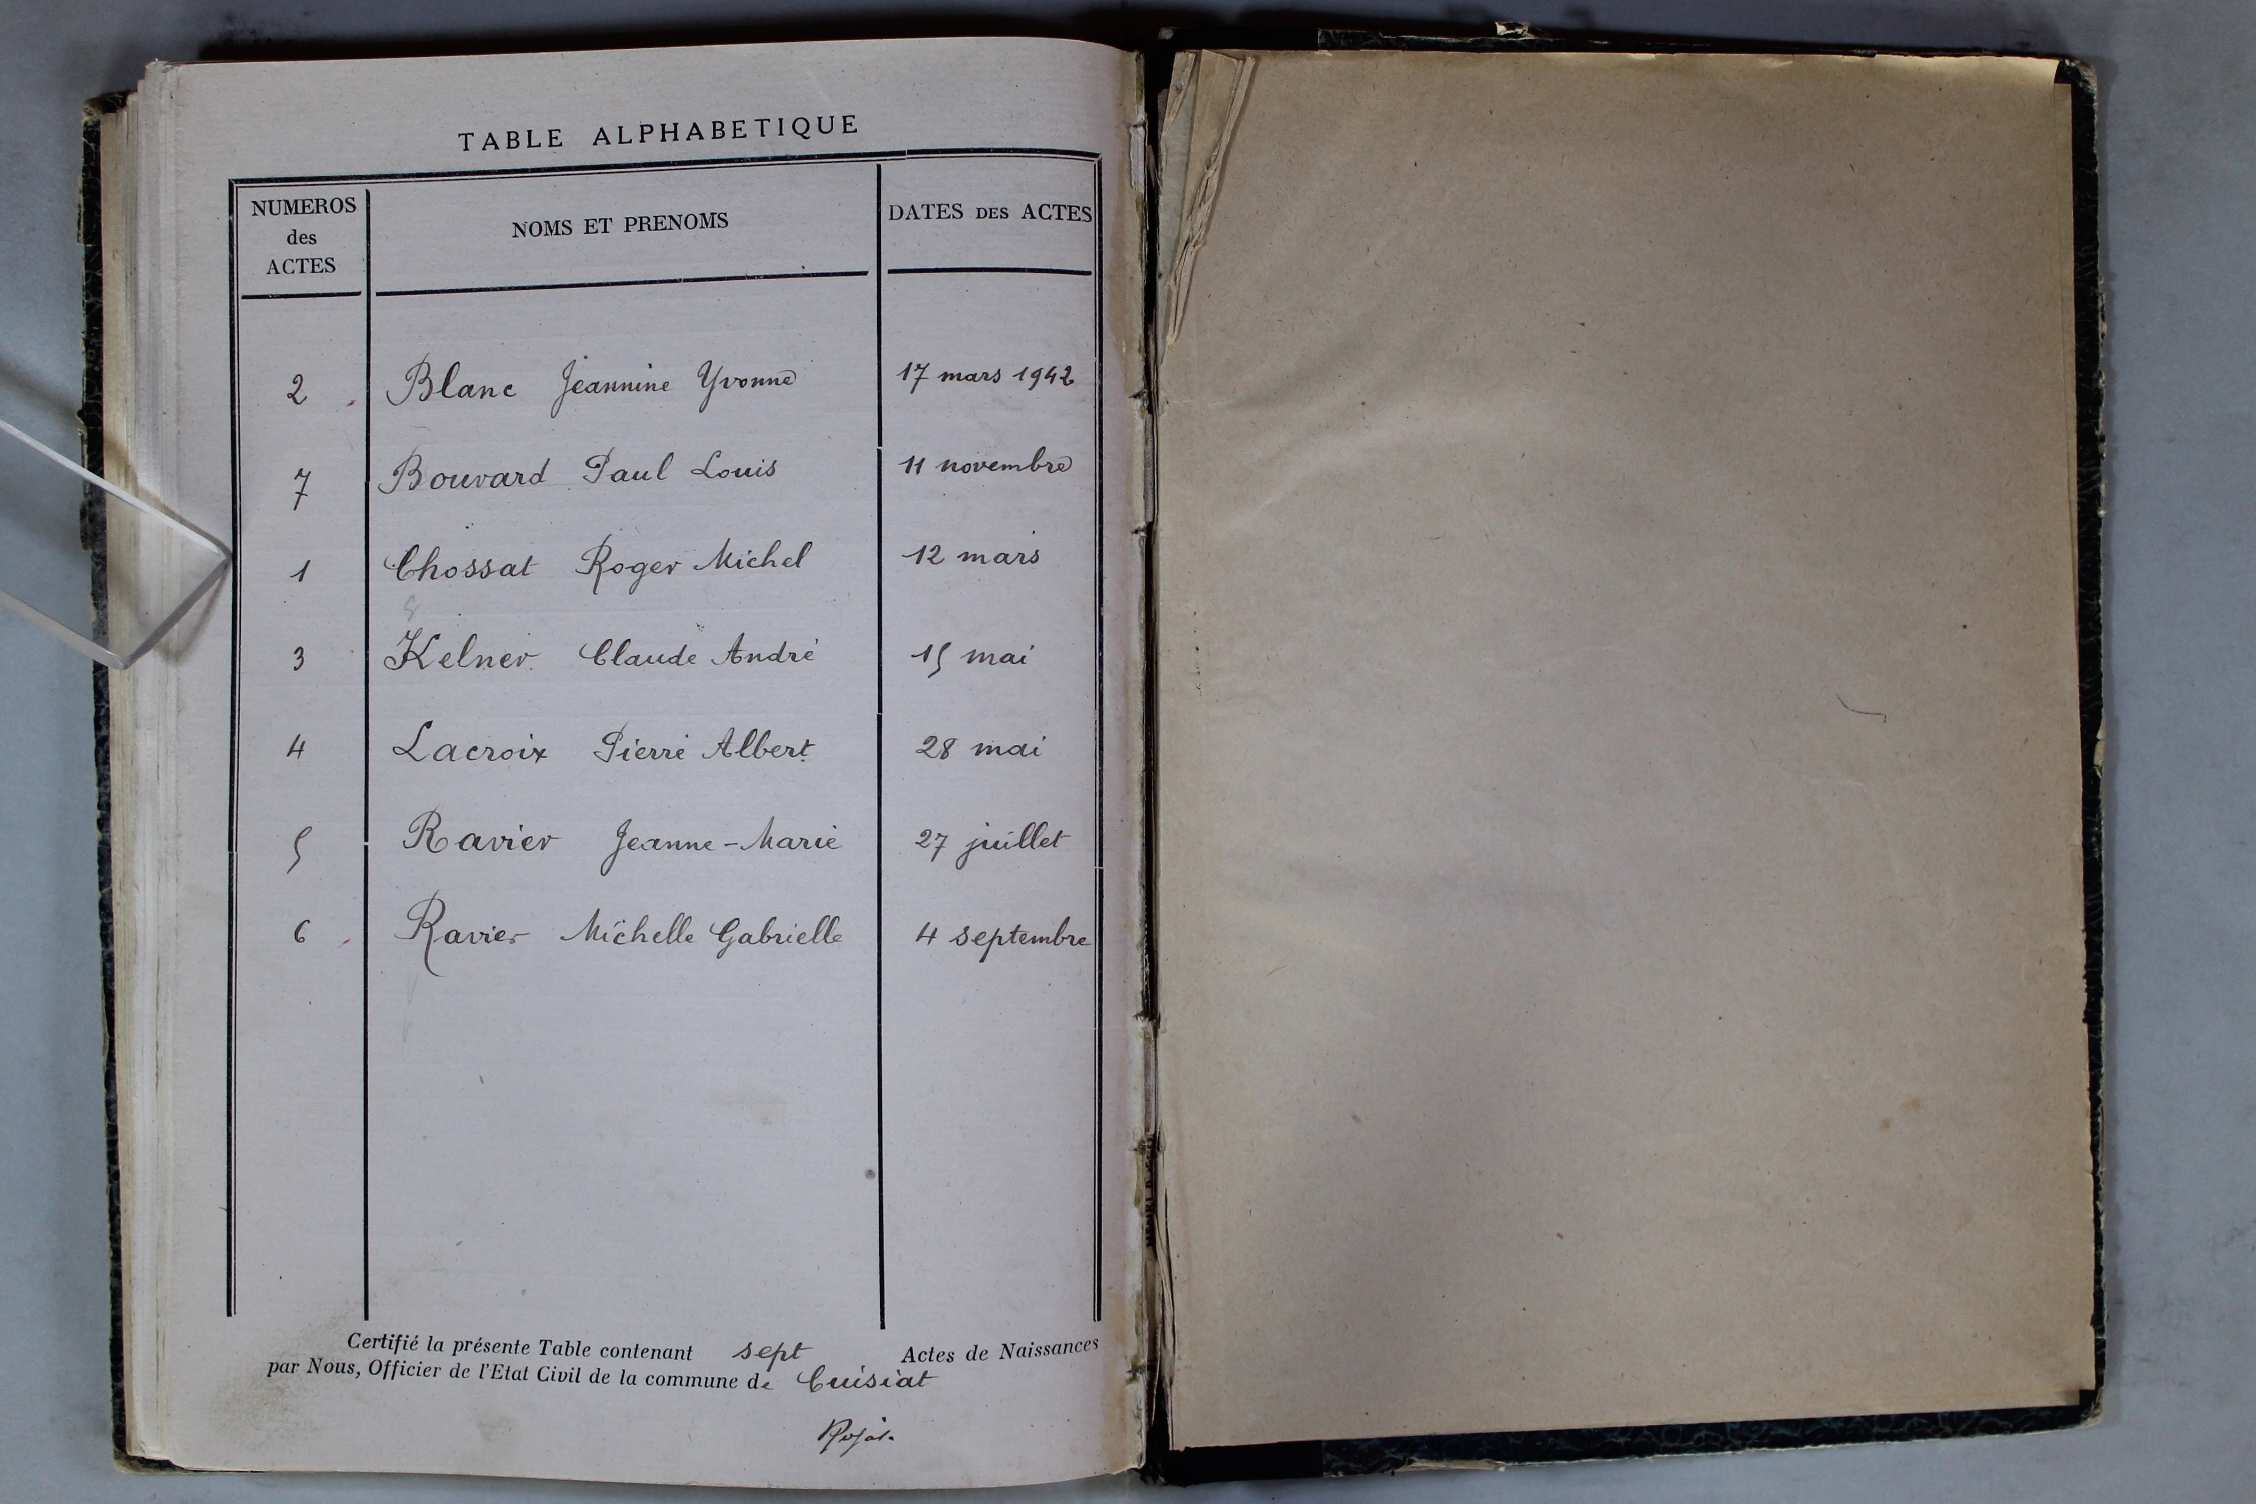 TABLE ALPHABETIQUE
NUMEROS des ACTES
NOMS ET PRENOMS
DATES DES ACTES
2 Blanc Jeannine Yvonne 17 mars 1942
7 Bouvard Paul Louis 11 novembre
1 Chossat Roger Michel 12 mars
3 Kelner Claude André 15 mai
4 Lacroix Pierre Albert 28 mai
5 Ravier Jeanne-Marie 27 juillet
6 Ravier Michelle Gabrielle 4 septembre
Certifié la présente Table contenant sept Actes de Naissances
par Nous, Officier de l'Etat Civil de la commune de Cuisiat